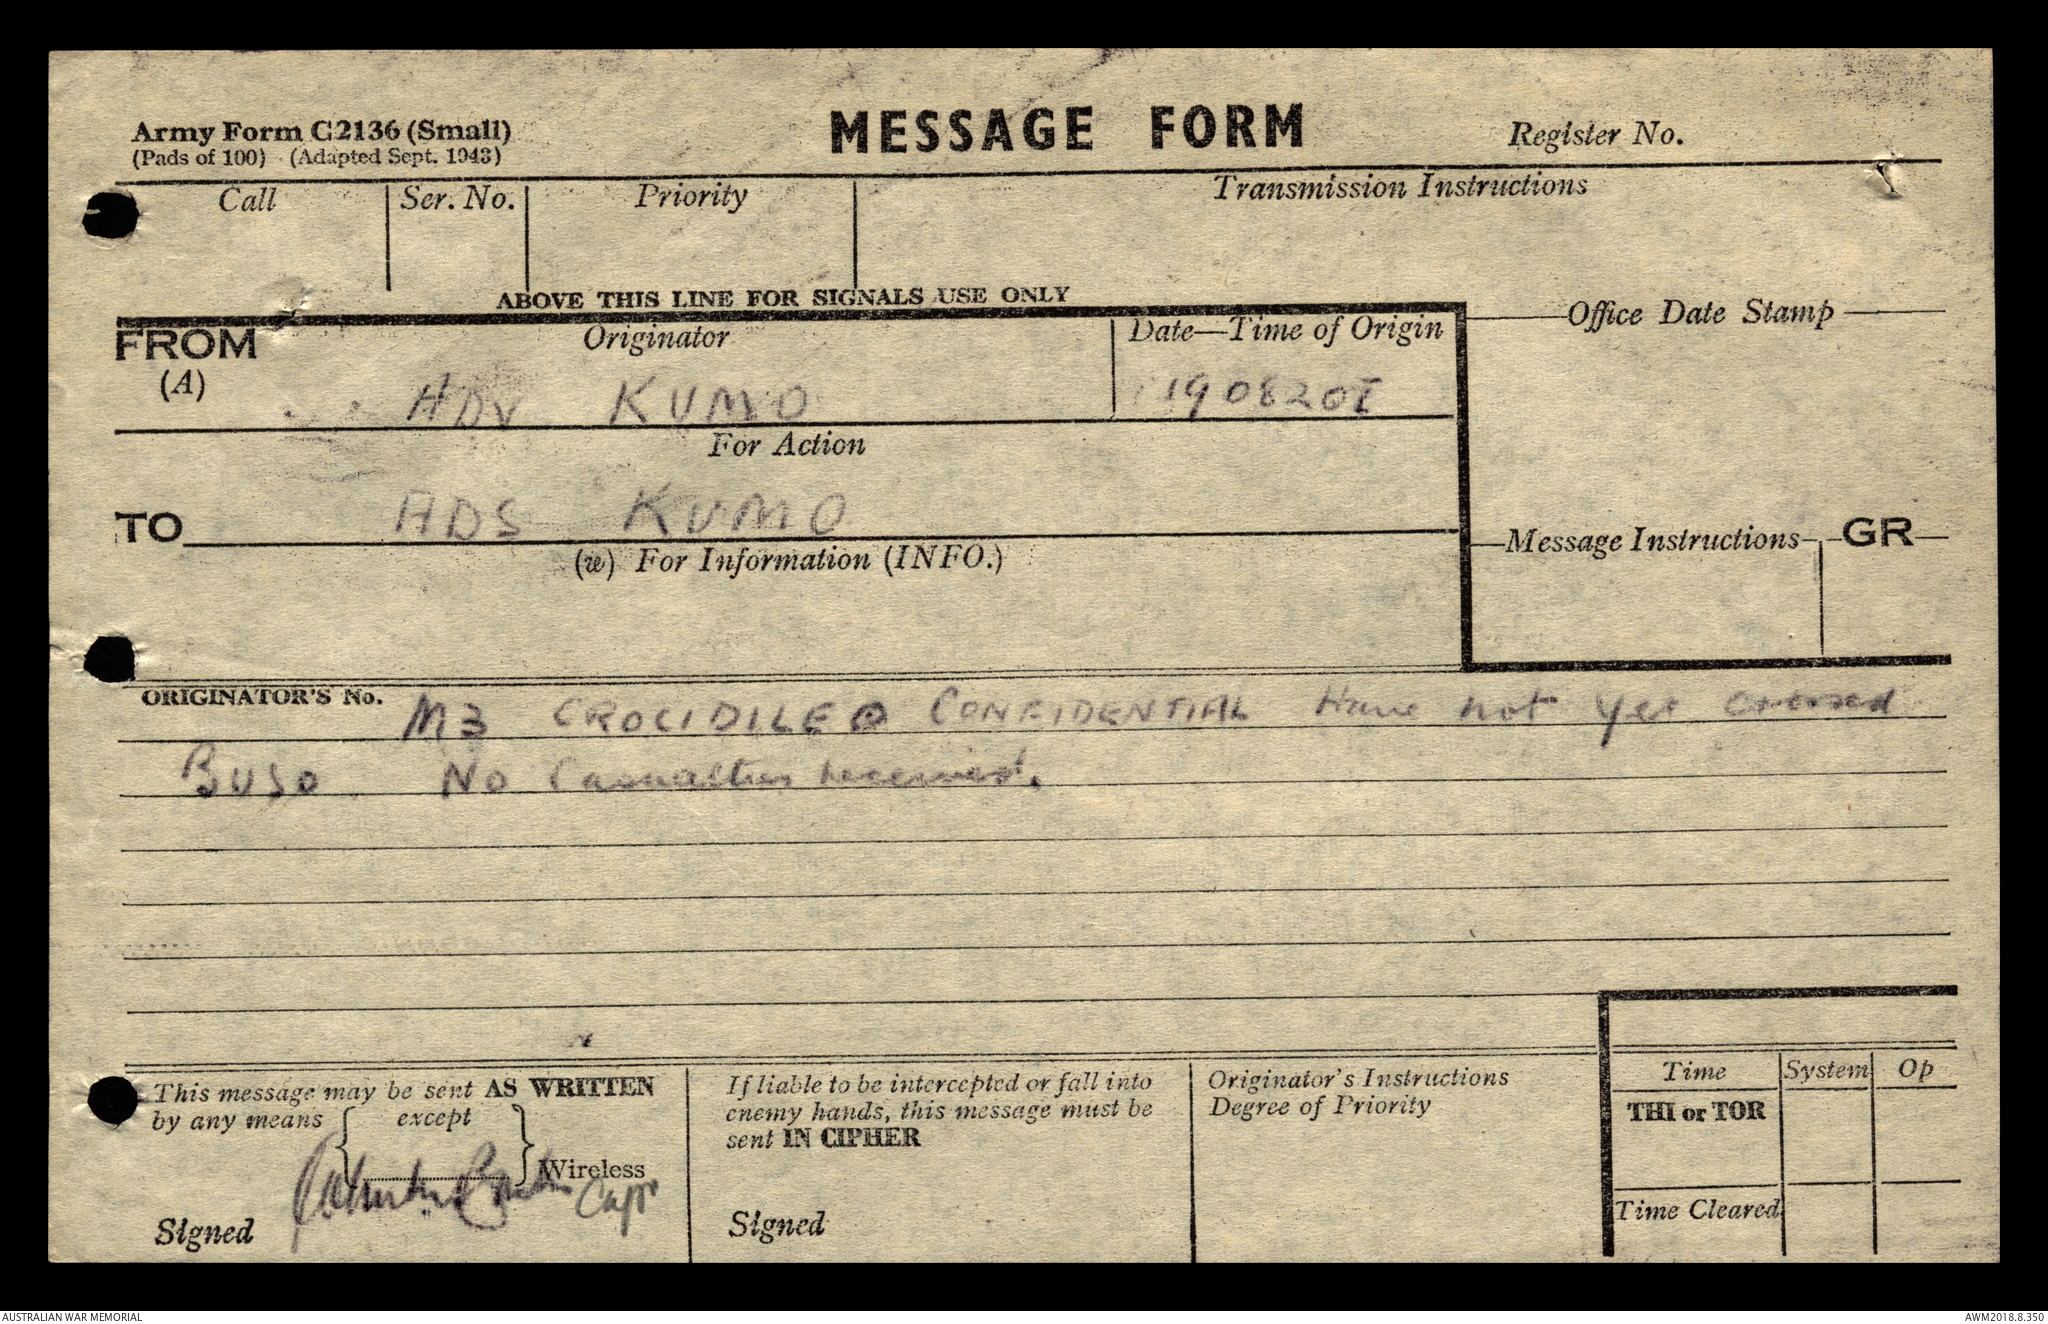 Army Form C2136 (Small)
(Pads of 100) (Adapted Sept. 1943)
MESSAGE FORM
Register No.
Call
Ser. No.
Priority
Transmission Instructions
ABOVE THIS LINE FOR SIGNALS USE ONLY
FROM
(A)
Originator
Date—Time of Origin
Office Date Stamp
ADV KUMO
190820I
For Action
TO
ADS KUMO
(w) For Information (INFO.)
Message Instructions
GR
ORIGINATOR'S No.
M3 CROCIDILE CONFIDENTIAL Have not yet crossed
BUSO No Casualties received.
This message may be sent AS WRITTEN
by any means { except } Wireless
Signed
Capt
If liable to be intercepted or fall into
enemy hands, this message must be
sent IN CIPHER
Signed
Originator's Instructions
Degree of Priority
Time System Op
THI or TOR
Time Cleared
AUSTRALIAN WAR MEMORIAL
AWM2018.8.350